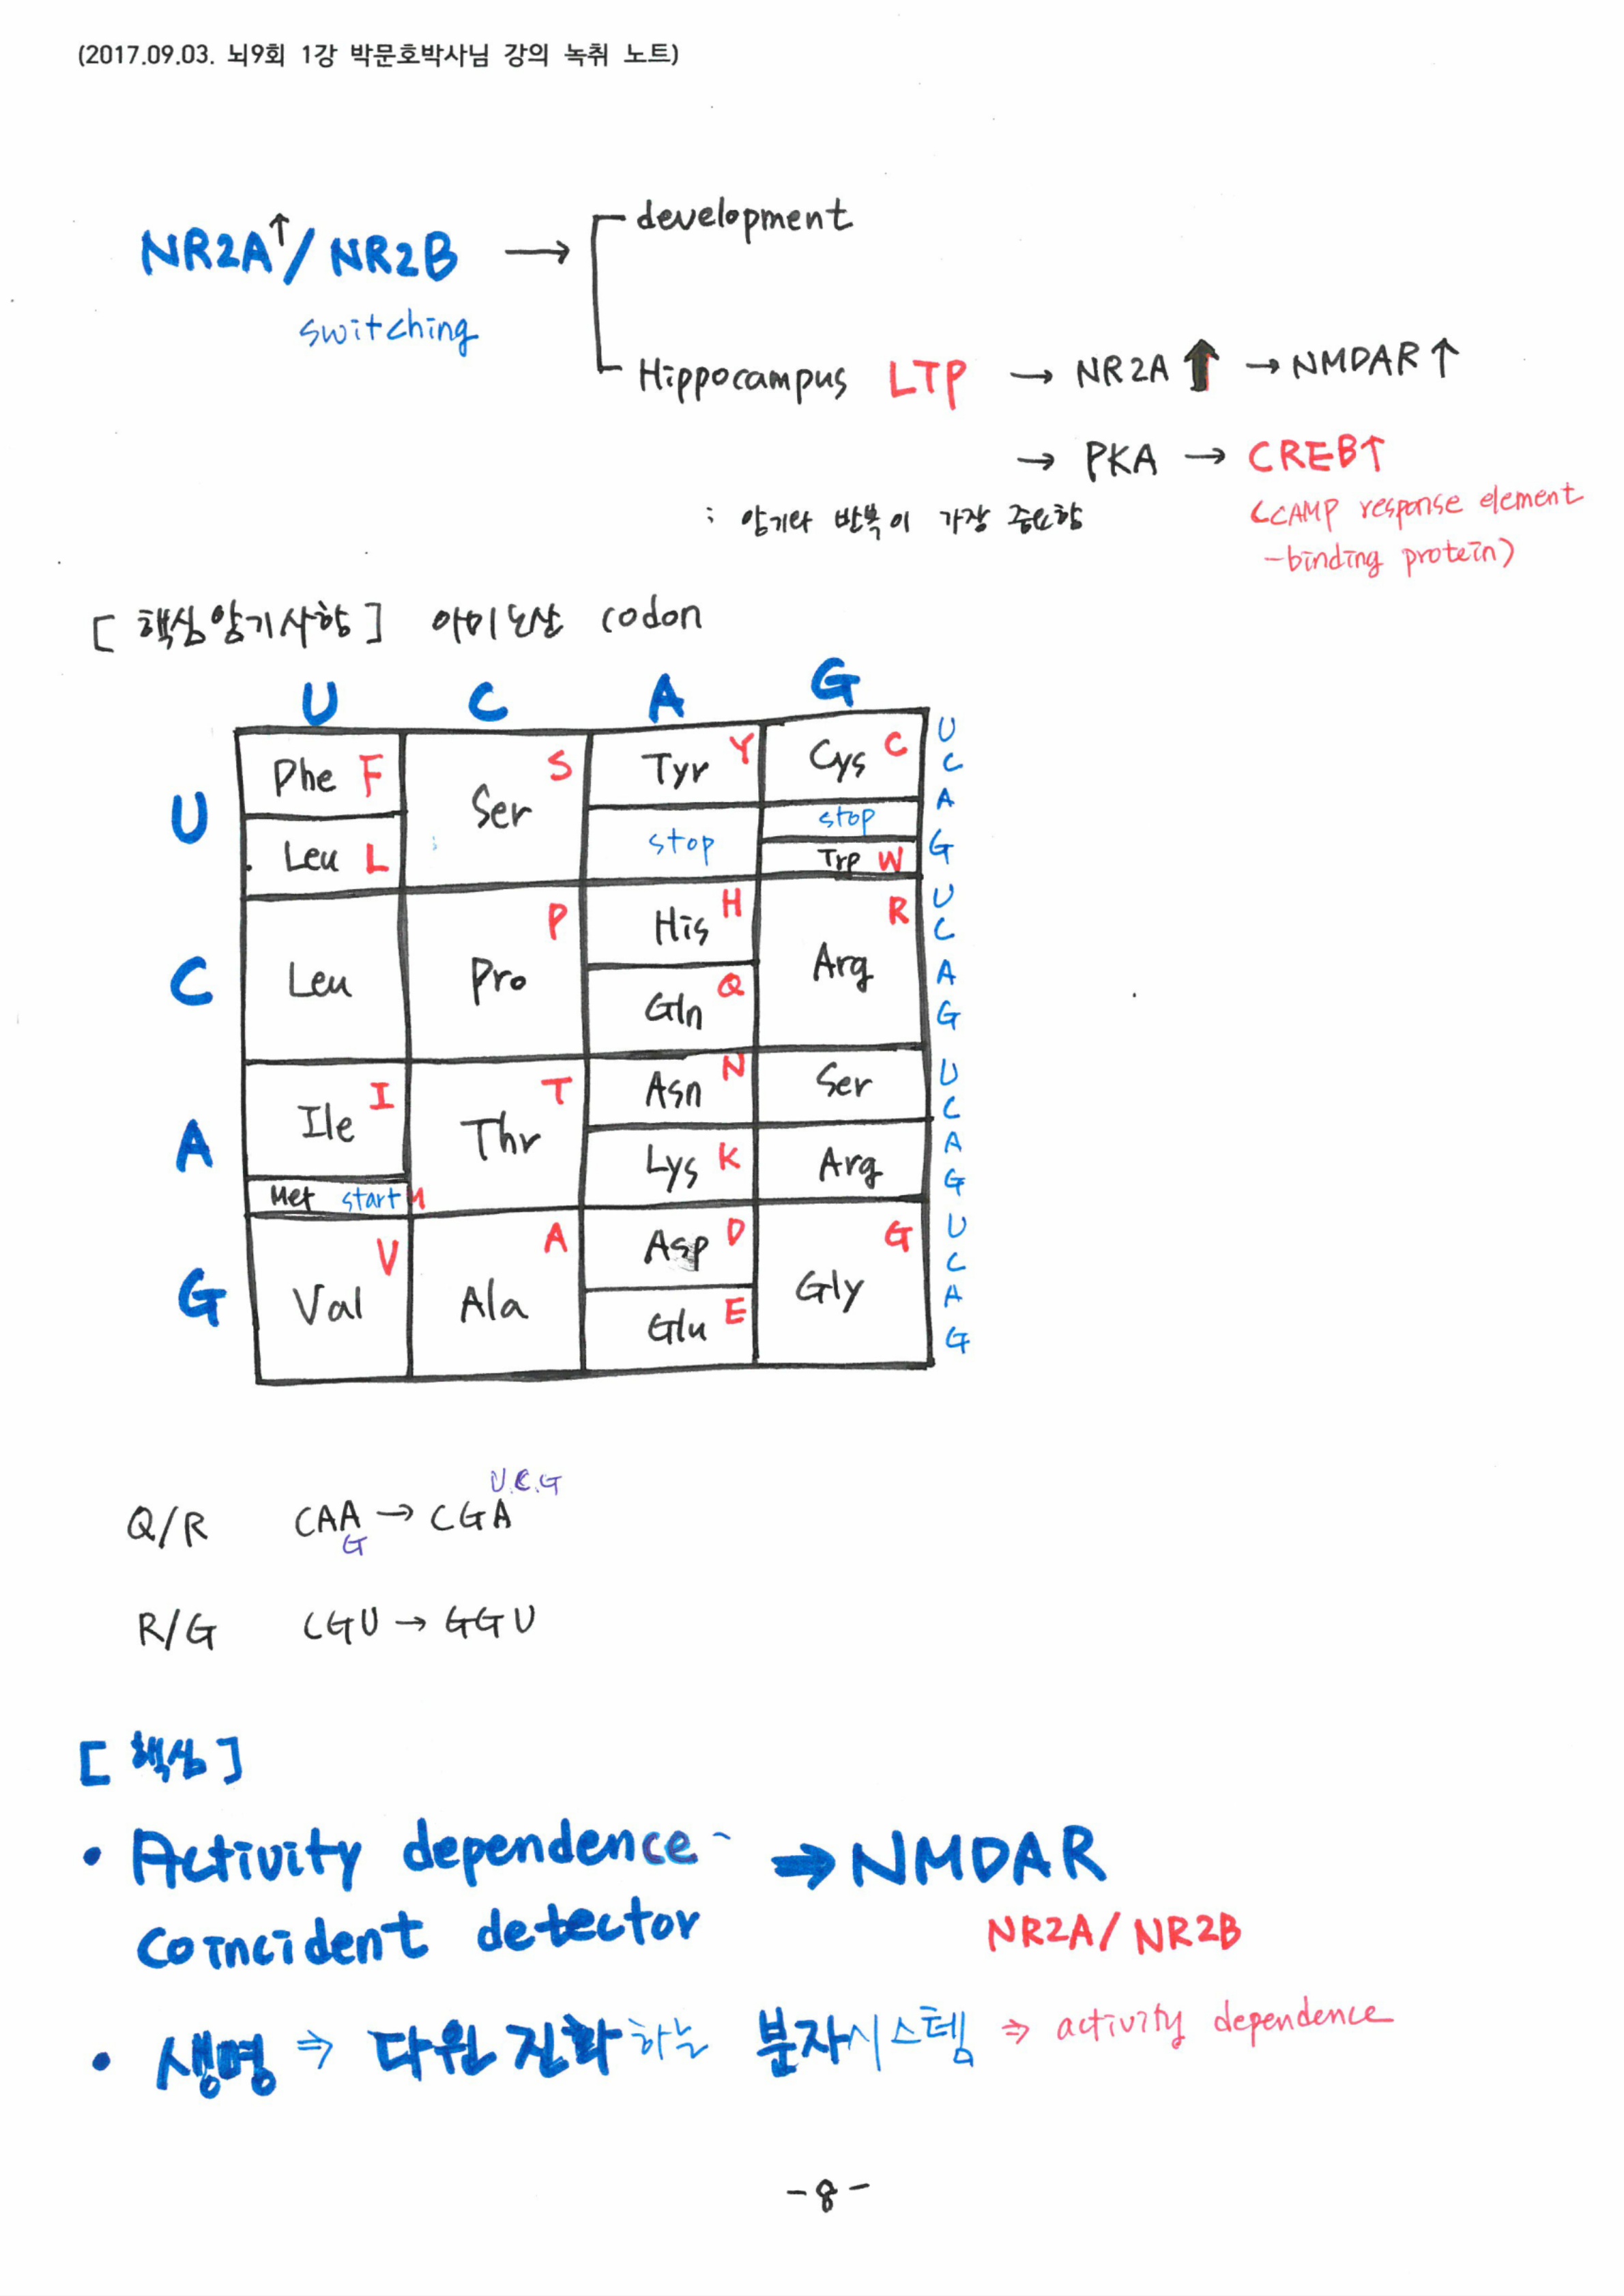 (2017.09.03. 뇌9회 1강 박문호박사님 강의 녹취 노트)
NR2A↑/NR2B → development
switching
Hippocampus LTP → NR2A ↑ → NMDAR↑
→ PKA → CREB↑
: 암기와 반복이 가장 중요함
(cAMP response element
-binding protein)
[핵심암기사항] 아미노산 codon
U C A G
U
Phe F
Leu L
Ser S
Tyr Y
stop
Cys C
stop
Trp W
U
C
A
G
C
Leu
Pro P
His H
Gln Q
Arg R
U
C
A
G
A
Ile I
Met start M
Thr T
Asn N
Lys K
Ser
Arg
U
C
A
G
G
Val V
Ala A
Asp D
Glu E
Gly G
U
C
A
G
U.C.G
Q/R CAA → CGA
G
R/G CGU → GGU
[핵심]
• Activity dependence ⇒ NMDAR
coincident detector NR2A/NR2B
• 생명 ⇒ 다윈 진화하는 분자시스템 ⇒ activity dependence
-8-